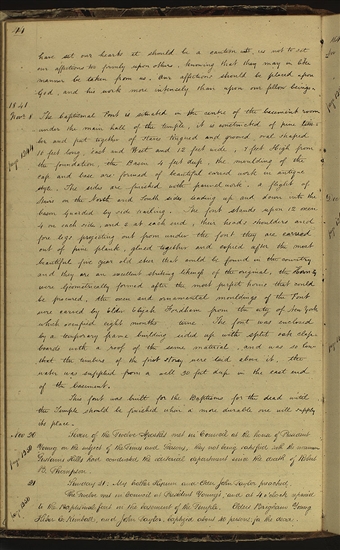 have set our hearts it should be a caution to us not to set
our affections too firmly upon others, knowing that they may in like
manner be taken from us. Our affections should be placed upon
God, and his work more intensely than upon our fellow beings.
1841
Nov. 8 The baptismal Font is situated in the centre of the basement room
under the main hall of the Temple, it is constructed of pine timber
and put together of staves tongued and grooved oval shaped
16 feet long, east and West and 12 feet wide, 7 feet High from
the foundation, the Basin 4 feet deep, the moulding of the
cap and base are formed of beautiful carved work in antique
style. The sides are finished with pannel work, a flight of
Stairs in the North and South sides leading up and down into the
basin guarded by side railing. The font stands upon 12 oxen
4 on each side, and 2 at each end, their heads shoulders and
fore legs projecting out from under the font they are carved
out of pine plank, glued together and copied after the most
beautiful five year old steer that could be found in the country
and they are an excellent striking likeness of the original, the Horns
were Geometrically formed after the most perfect horn that could
be procured, the oxen and ornamental mouldings of the Font
were carved by elder Elijah Fordham from the city of New York
which occupied eight months time The font was enclosed
by a temporary frame building sided up with split oak clap-
boards with a roof of the same material, and was so low
that the timbers of the first story were laid above it. the
water was supplied from a well 30 feet deep in the east end
of the basement.
This font was built for the Baptisms for the dead until
the Temple should be finished when a more durable one will supply
its place.
Nov 20 Seven of the Twelve Apostles met in Council at the house of President
Young on the subject of the Times and Seasons, they not being satisfied with the manner
Gustavus Hills had conducted the editorial department since the death of Robert
B. Thompson.
21 Sunday 21. My brother Hyrum and Elder John Taylor preached,
The Twelve met in Council at President Young's, and at 4 o'clock repaired
to the Baptismal font in the basement of the Temple. Elders Brigham Young
Heber C. Kimball, and John Taylor, baptized about 40 persons for the dead.